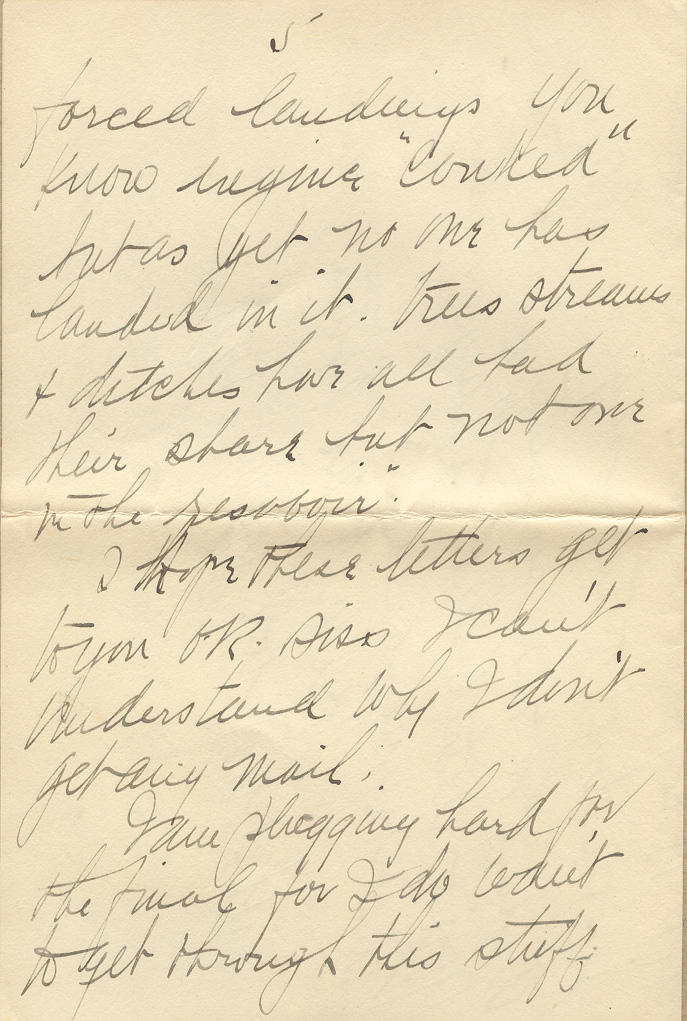 5
forced landings you
know engine "conked"
but as yet no one has
landed in it. Trees streams
& ditches have all had
their share but not one
in the resavoir."
I hope these letters get
to you O.K. Siss I can't
understand why I don't
get any mail.
I am plugging hard for
the final for I do want
to get through this stuff.